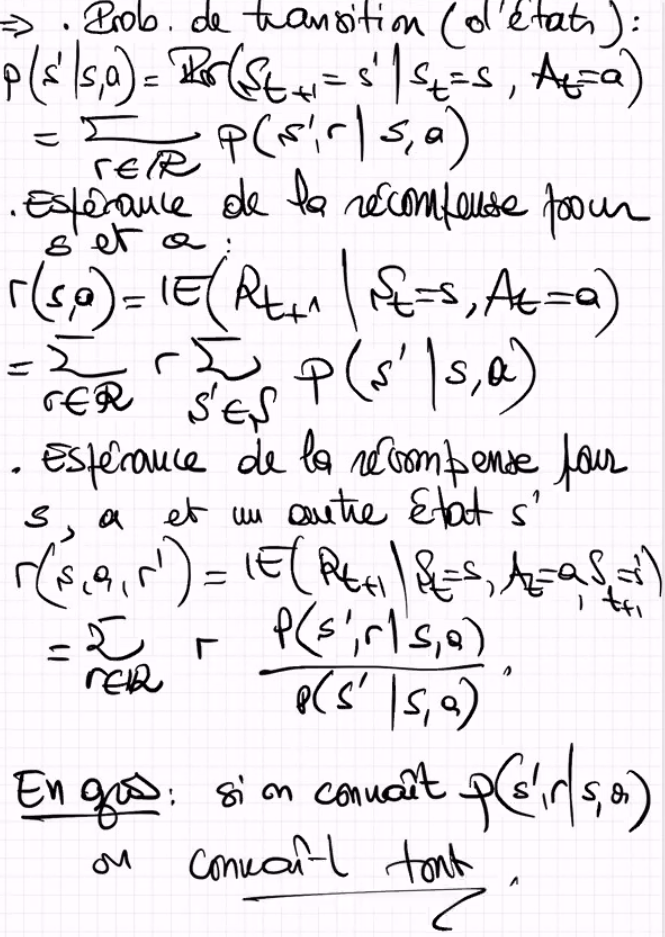 ⇒ . Prob. de transition (d'états) :
p(s'|s,a) = Pr(S_{t+1} = s' | S_t = s, A_t = a)
= ∑_{r∈ℝ} p(s', r | s, a)
. Espérance de la récompense pour
s et a :
r(s,a) = 𝔼(R_{t+1} | S_t = s, A_t = a)
= ∑_{r∈ℝ} r ∑_{s'∈S} p(s' | s, a)
. Espérance de la récompense pour
s, a et un autre état s'
r(s, a, r') = 𝔼(R_{t+1} | S_t = s, A_t = a, S_{t+1} = s')
= ∑_{r∈ℝ} r p(s', r | s, a) / p(s' | s, a) .
En gros : si on connaît p(s', r | s, a)
on connaît tout .